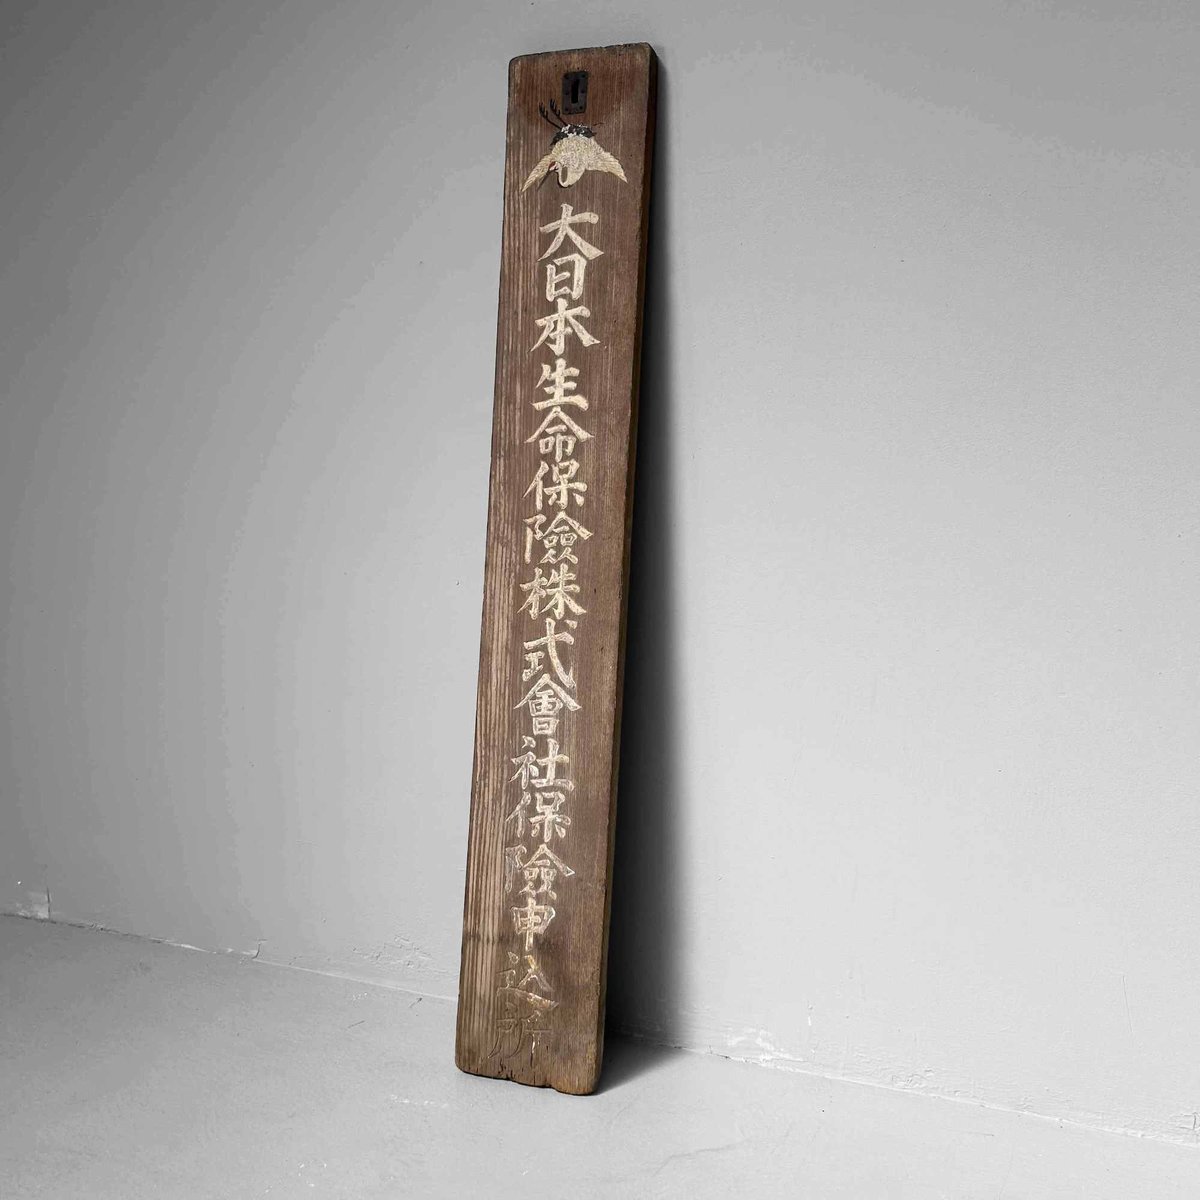 大日本生命保險株式會社保險申込所